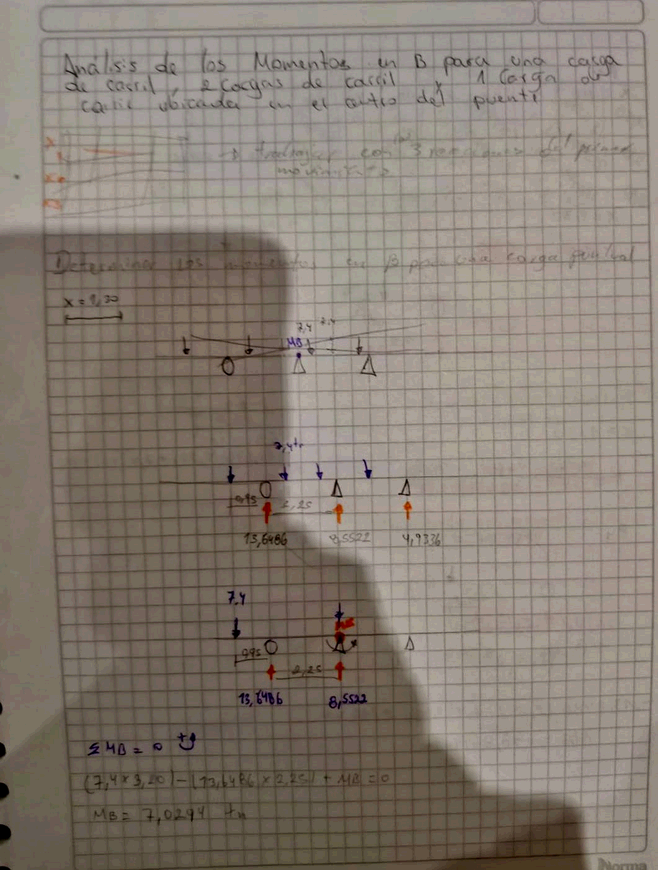 Analisis de los Momentos en B para una carga
de carril, 2 cargas de carril y 1 Carga de
carril ubicada en el centro del puente
→ trabajar con 3 reacciones del primer
movimiento
Determinar los momentos en B por una carga puntual
x = 1,30
7,4 7,4
MB
7,4 tn
0,95 2,25
13,6486 8,5522 4,9336
7.4
0,95 2,25
13,6486 8,5522
Σ MB = 0 +
(7,4 x 3,20) - (13,6486 x 2,25) + MB = 0
MB = 7,0294 tn
Norma